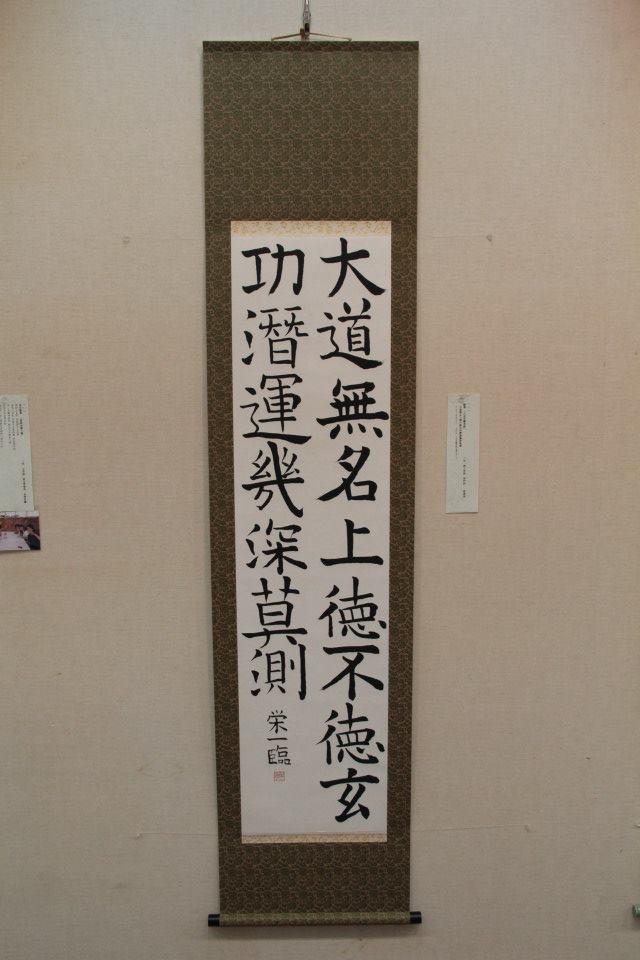 大道無名上德不德玄
功潛運幾深莫測
栄一臨